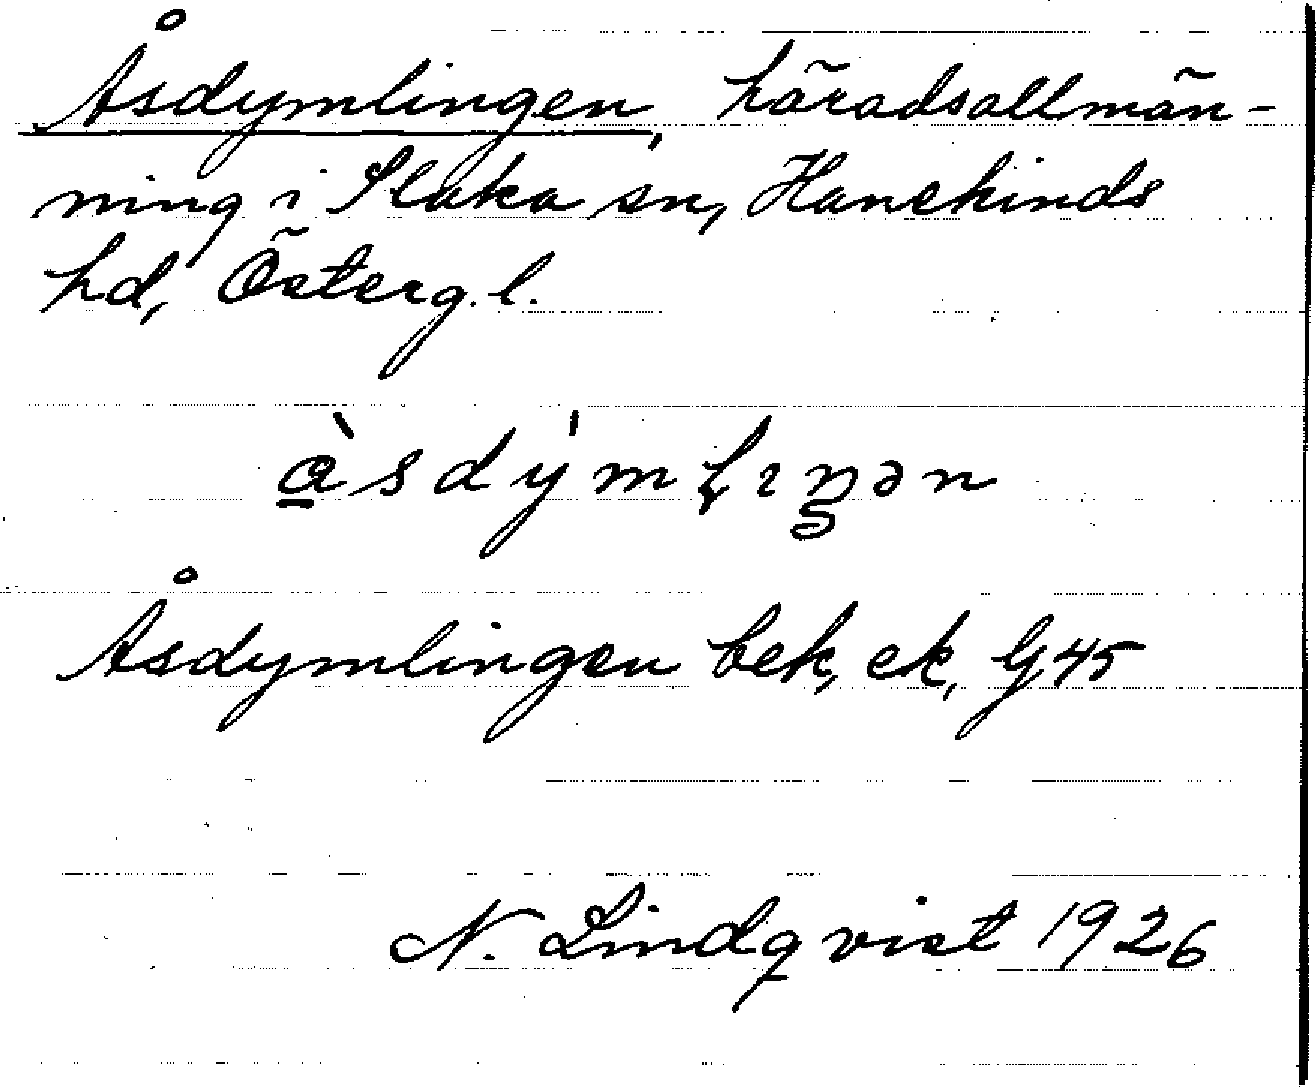 Åsdymlingen, häradsallmän-
ning i Slaka sn, Hanekinds
hd, Österg. l.
Åsdymlingen bek, ek, G45
N. Lindqvist 1926